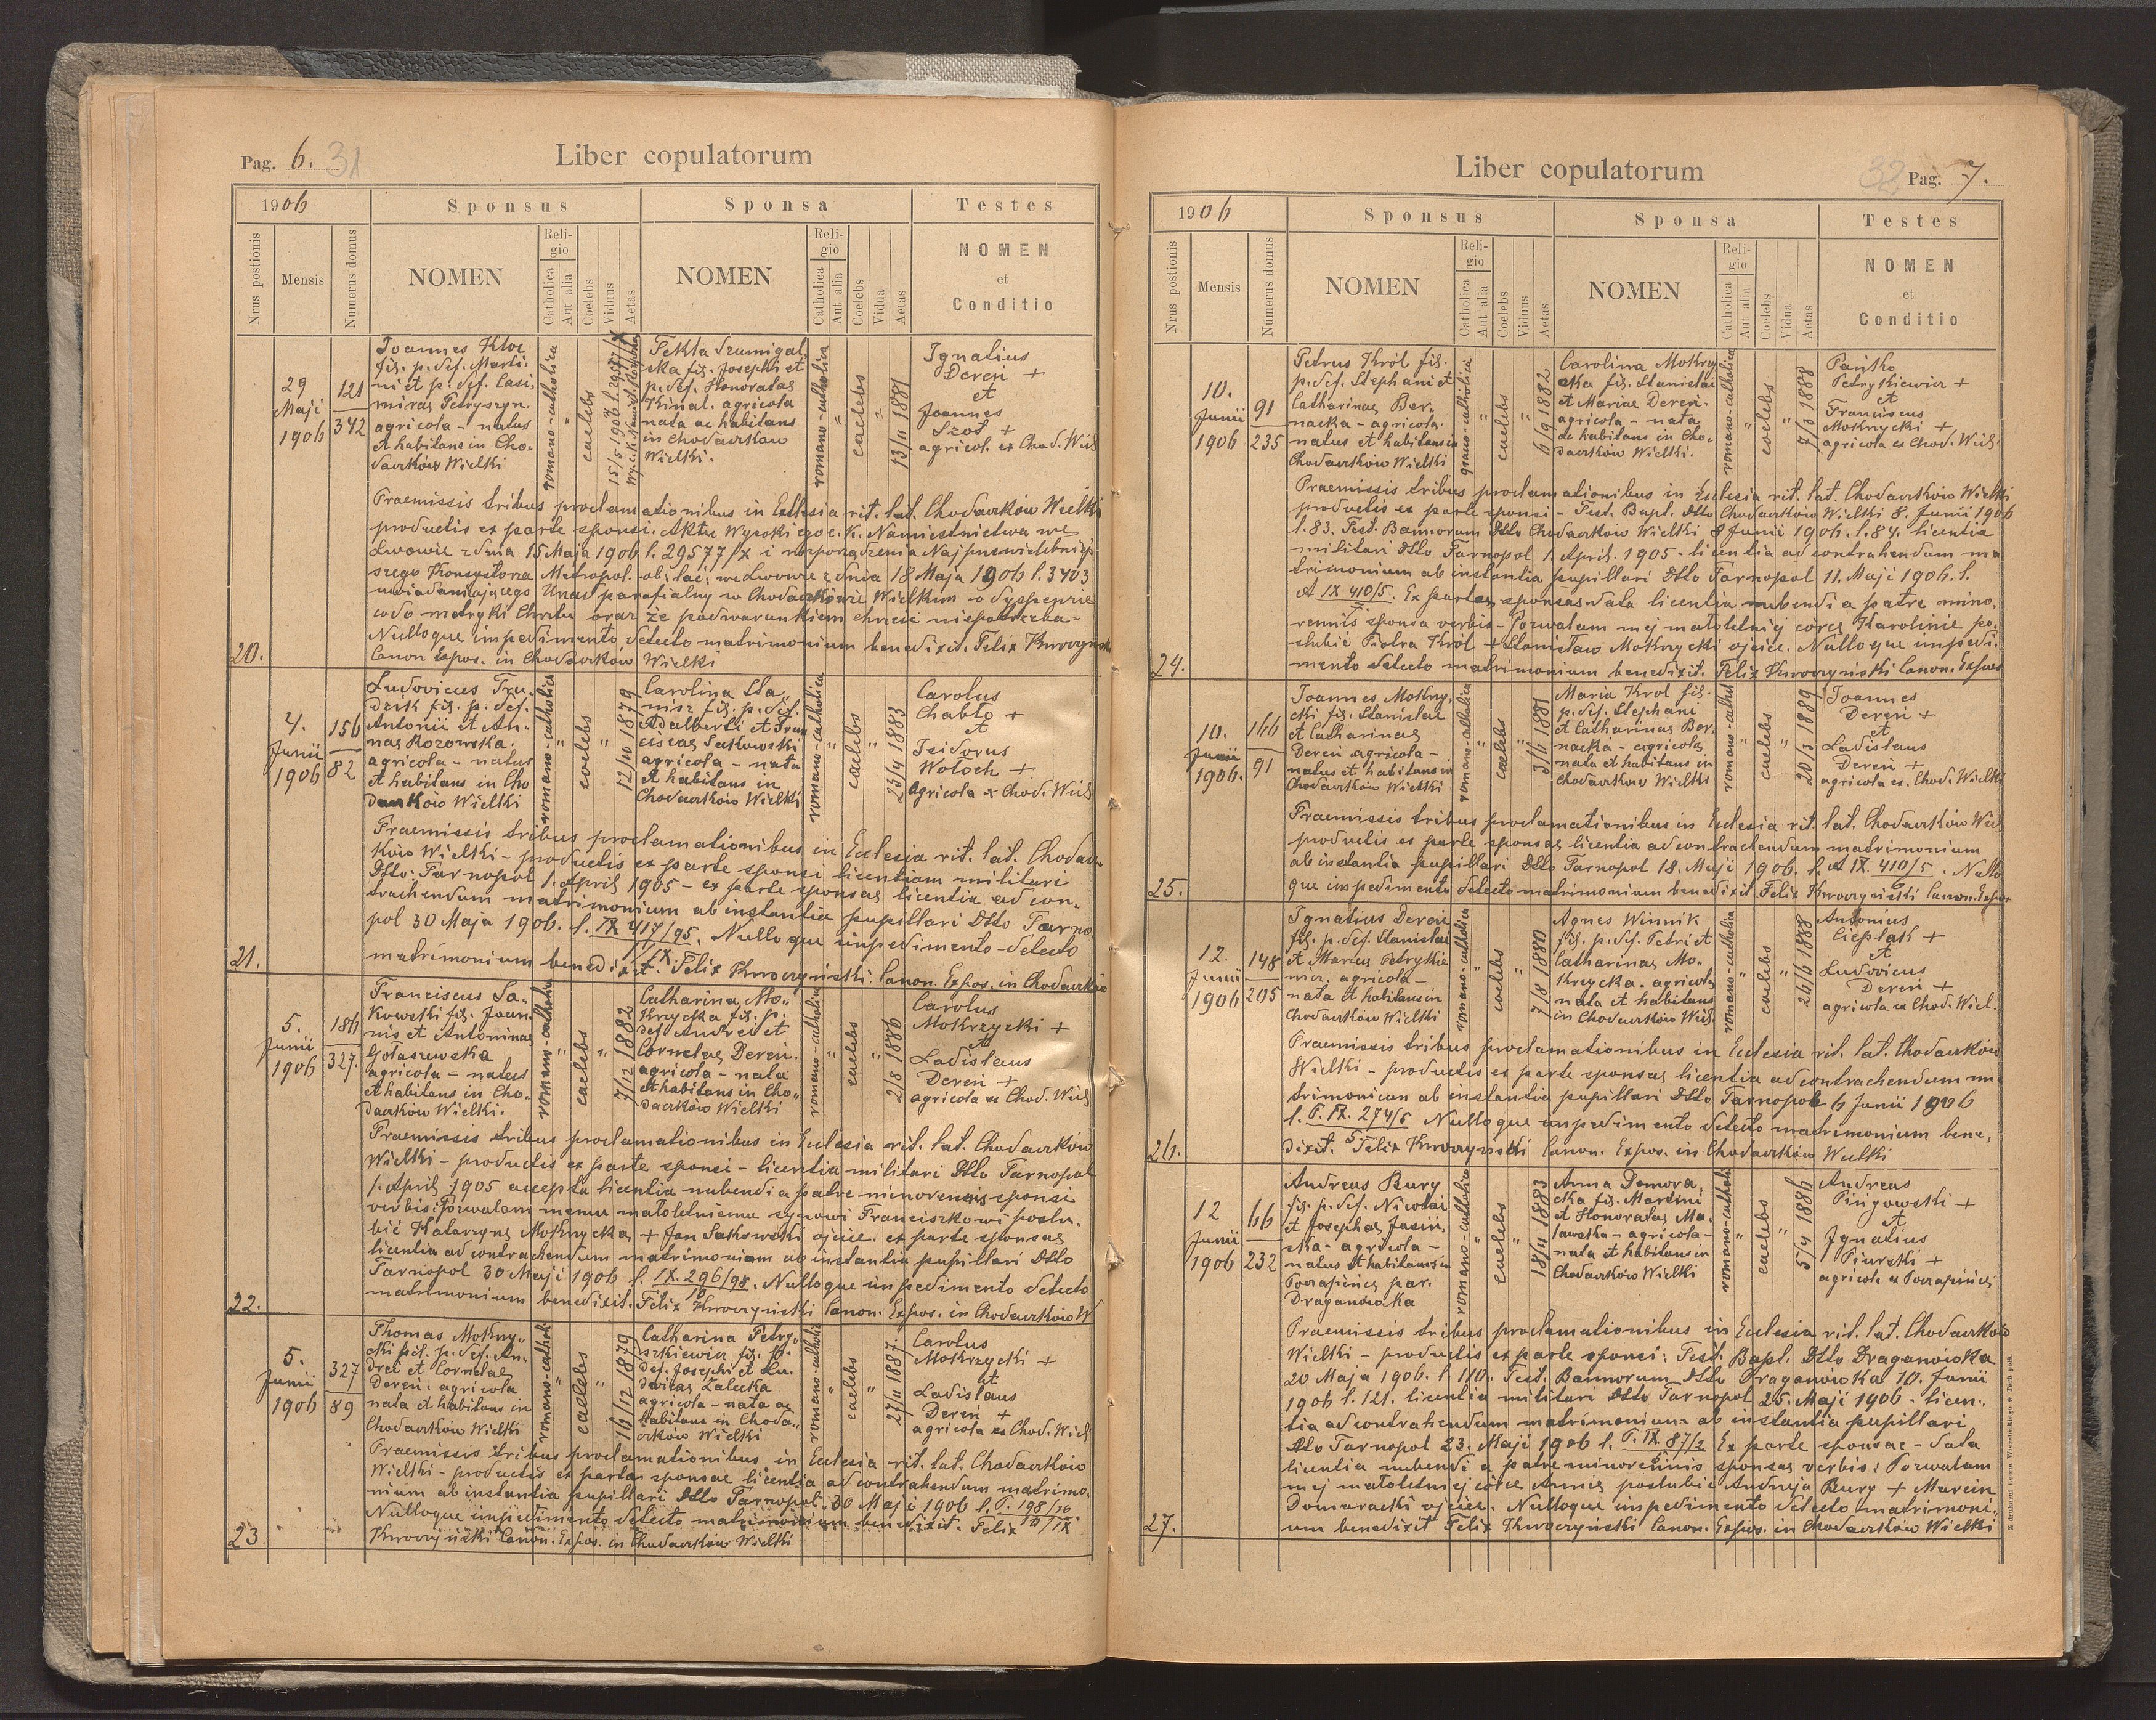 Pag. 6. 31
Liber copulatorum
1906
Sponsus
Sponsa
Testes
Nrus postionis
Mensis
Numerus domus
NOMEN
Religio
Catholica
Aut alia
Coelebs
Viduus
Aetas
NOMEN
Religio
Catholica
Aut alia
Coelebs
Vidua
Aetas
NOMEN
et
Conditio
20.
29
Maji
1906
121
342
Joannes Kloc
fil. p. def. Marti-
ni et p. def. Casi-
miras Petryszyn
agricola - natus
et habitans in Cho-
daczków Wielki
romano-catholica
"
caelebs
Tekla Szumigal-
ska fil. Josephi et
p. def. Honoratae
Kinal. agricola
nata ac habitans
in Chodaczkow
Wielki.
romano-catholica
"
caelebs
"
13/11 1881
Ignatius
Dereń +
et
Joannes
Szot +
agricol. ex Chod. Wiel
Praemissis tribus proclamationibus in Ecclesia rit. lat. Chodaczków Wielki
productis ex parte sponsi. Aktu Wysokiego c. k. Namiestnictwa we
Lwowie z dnia 15 Maja 1906 l. 29577/X i rozporządzenia Najprzewielebniej-
szego Konsystorza Metropol. ob. łac. we Lwowie z dnia 18 Maja 1906 l. 3403
uwiadamiającego Urząd parafialny w Chodaczkowie Wielkim o dyspenzie
co do metryki Chrztu oraz że pod warunkiem chrzcić nie potrzeba-
Nulloque impedimento detecto matrimonium benedixit. Felix Kwoczyński
Canon Expos. in Chodaczków Wielki
21.
4.
Junii
1906
156
82
Ludovicus Tru-
dzik fil. p. def.
Antonii et An-
nas Rozowska.
agricola - natus
et habitans in Cho
daczków Wielki
romano-catholica
"
coelebs
"
12/10 1879
Carolina Sta-
nisz fil. p. def.
Adalberti et Fran
ciscas Sakowski
agricola - nata
et habitans in
Chodaczków Wielki
romano-catholica
"
caelebs
"
23/4 1883
Carolus
Chabto +
et
Isidorus
Wołoch +
agricola ex Chod. Wiel
Praemissis tribus proclamationibus in Ecclesia rit. lat. Chodacz-
ków Wielki - productis ex parte sponsi licentiam militari
Dtto: Tarnopol 1. April 1905 - ex parte sponsas licentia ad con-
trachendum matrimonium ab instantia pupillari Dtto Tarno-
pol 30 Maja 1906. l. IX 417/95. Nulloque impedimento detecto
matrimonium benedixit. Felix Kwoczyński. Canon. Expos. in Chodaczków
22.
5.
Junii
1906
186
327.
Franciscus Sa-
kowski fil. Joan-
nis et Antoninas
Gołaszewska
agricola - natus
et habitans in Cho-
daczków Wielki.
romano-catholica
"
caelebs
"
7/12 1882
Catharina Mo-
krzycka fil. p.
def. Andrei et
Cornelas Dereń.
agricola - nata
et habitans in Cho-
daczków Wielki
romano-catholica
"
caelebs
"
2/8 1886
Carolus
Mokrzycki +
et
Ladislaus
Dereń +
agricola ex Chod. Wiel
Praemissis tribus proclamationibus in Ecclesia rit. lat. Chodaczków
Wielki - productis ex parte sponsi - licentia militari Dtto Tarnopol
1. April 1905 accepta licentia nubendi a patre minorennis sponsi
verbis: Pozwalam memu małoletniemu synowi Franciszkowi poślu-
bić Katarzynę Mokrzycką + Jan Sakowski ojciec. ex parte sponsas
licentia ad contrachendum matrimoniam ab instantia pupillari Dtto
Tarnopol 30 Maji 1906 l. IX. 296/98. Nulloque impedimento detecto
matrimonium benedixit. Felix Kwoczyński Canon. Expos. in Chodaczków W
23.
5.
Junii
1906
327
89
Thomas Mokrzy-
cki fil. p. def. An-
drei et Cornelas
Dereń. agricola
nata et habitans in
Chodaczków Wielki
romano-cathol
"
caelebs
"
16/12 1879
Catharina Petry-
szkiewicz fil. p.
def. Josephi et Lu-
dvicas Zalecka
agricola - nata ac
habitans in Choda-
czków Wielki
romano-catholica
"
caelebs
"
27/11 1887.
Carolus
Mokrzycki +
et
Ladislaus
Dereń +
agricola ex Chod. Wiel
Praemissis tribus proclamationibus in Ecclesia rit. lat. Chodaczków
Wielki - productis ex parte sponsae licentia ad contrahendum matrimo-
nium ab instantia pupillari Dtto Tarnopol. 30 Maji 1906 l. P. 198/16
Nulloque impedimento detecto matrimonium benedixit. Felix
Kwoczyński Canon. Expos. in Chodaczków Wielki
Liber copulatorum
32 Pag. 7.
1906
Sponsus
Sponsa
Testes
Nrus postionis
Mensis
Numerus domus
NOMEN
Religio
Catholica
Aut alia
Coelebs
Viduus
Aetas
NOMEN
Religio
Catholica
Aut alia
Coelebs
Vidua
Aetas
NOMEN
et
Conditio
24.
10.
Junii
1906
91
235
Petrus Król fil.
p. def. Stephani et
Catharinas Ber-
nacka - agricola.
natus et habitans in
Chodaczków Wielki
graeco-catholica
"
caelebs
"
6/9 1882
Carolina Mokrzy-
cka fil. Stanislai
et Mariae Dereń.
agricola - nata
ac habitans in Cho-
daczków Wielki.
romano-catholica
"
coelebs
"
7/3 1888
Pańko
Petrykiewicz +
et
Franciscus
Mokrzycki +
agricola ex Chod. Wiel.
Praemissis tribus proclamationibus in Ecclesia rit. lat. Chodaczków Wielki
productis ex parte sponsi - Test. Bapt. Dtto Chodaczków Wielki 8. Junii 1906
l. 83. Test. Bannorum Dtto Chodaczków Wielki 8 Junii 1906. l. 84. licentia
militari Dtto Tarnopol 1. April. 1905 - licentia ad contrahendum ma
trimonium ab instantia pupillari Dtto Tarnopol 11. Maji 1906. l.
A IX 410/5. Ex parte sponsas data licentia nubendi a patre mino-
rennis sponsa verbis - Pozwalam mej małoletniej córce Karolinie po-
ślubić Piotra Król + Stanisław Mokrzycki ojciec. Nulloque impedi-
mento detecto matrimonium benedixit. Felix Kwoczyński Canon. Expos
25.
10.
Junii
1906.
166
91
Joannes Mokrzy-
cki fil. Stanislai
et Catharinas
Dereń agricola -
natus et habitans in
Chodaczków Wielki
romano-catholica
"
caelebs
"
3/6 1881
Maria Krol fil.
p. def. Stephani
et Catharinas Ber-
nacka - agricola
nata et habitans in
Chodaczków Wielki
romano-cathol
"
caelebs
"
20/3 1889
Joannes
Dereń +
et
Ladislaus
Dereń +
agricola ex. Chod. Wielki
Praemissis tribus proclamationibus in Ecclesia rit. lat. Chodaczków Wiel
productis ex parte sponsas licentia ad contrachendum matrimonium
ab instantia pupillari Dtto Tarnopol 18. Maji 1906. l. A IX. 410/5. Nullo
que impedimento detecto matrimonium benedixit Felix Kwoczyński Canon. Expos
26.
12.
Junii
1906
148
205
Ignatius Dereń
fil. p. def. Stanislai
et Marias Petrykie
wicz. agricola -
nata et habitans in
Chodaczków Wielki
romano-catholica
"
coelebs
"
7/8 1880
Agnes Winnik
fil. p. def. Petri et
Catharinas Mo-
krzycka - agricola
nata et habitans
in Chodaczków Wiel.
romano-catholica
"
caelebs
"
26/6 1888
Antonius
Cieplak +
et
Ludovicus
Dereń +
agricola ex Chod. Wiel.
Praemissis tribus proclamationibus in Ecclesia rit. lat. Chodaczków
Wielki - productis ex parte sponsas licentia ad contrachendum ma-
trimonium ab instantia pupillari Dtto Tarnopol 6 Junii 1906
l. P. IX. 274/5 Nulloque impedimento detecto matrimonium bene-
dixit. Felix Kwoczyński Canon. Expos. in Chodaczków Wielki
27.
12
Junii
1906
66
232
Andreas Bury
fil. p. def. Nicolai
et Josephas Jasiń-
ska - agricola -
natus et habitans in
Poczapińce par.
Draganówka
romano-catholica
"
caelebs
"
18/11 1883
Anna Domara-
cka fil. Martini
et Honoratas Ma-
lawska - agricola -
nata et habitans in
Chodaczków Wielki
romano-catholi
"
caelebs
"
5/4 1886
Andreas
Pingowski +
et
Ignatius
Piurski +
agricola ex Poczapińce
Praemissis tribus proclamationibus in Ecclesia rit. lat. Chodaczków
Wielki - productis ex parte sponsi: Test. Bapt. Dtto Draganówka
20 Maja 1906. l. 110. Test. Bannorum Dtto Draganówka 10. Junii
1906 l. 121. licentia militari Dtto Tarnopol 25. Maji 1906 - licen-
tia ad contrahendum matrimonium ab instantia pupillari
Dtto Tarnopol 23. Maji 1906 l. P. IX 87/2 Ex parte sponsae - data
licentia nubendi a patre minorennis sponsas verbis: Pozwalam
mej małoletniej córce Annie poślubić Andreja Bury + Marcin
Domaracki ojciec. Nulloque impedimento detecto matrimoni-
um benedixit Felix Kwoczyński Canon. Expos. in Chodaczków Wielki